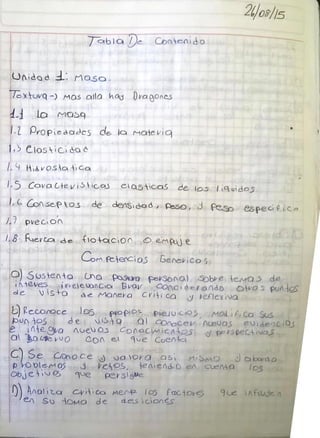 26/08/15
Tabla De Contenido
Unidad 1: Masa.
Textura -) Mas alla hay Dragones
1.1 la masa
1.2 Propiedades de la Materia
1.3 Elasticidad
1.4 Hidrostatica
1.5 Caracteristicas elasticas de los liquidos
1.6 Conseptos de densidad, Peso, y Peso especifico
1.7 precion
1.8 fuerza de flotacion o empuje
Competencias Genericas.
a) Sustenta una postura personal sobre temas de
interes y relevancia considerando otros puntos
de vista de Manera critica y reflexiva
b) Reconoce los propios prejuicios, Modifica Sus
puntos de vista al conocer nuevas evidencias
e integra nuevos Conocimientos y perspectivas
al acervo Con el que Cuenta
C) Se conoce y valora asi mismo y aborda
problemas y retos, teniendo en cuenta los
Objetivos que persigue
D) Analiza critica mente los factores que influyen
en su toma de desiciones